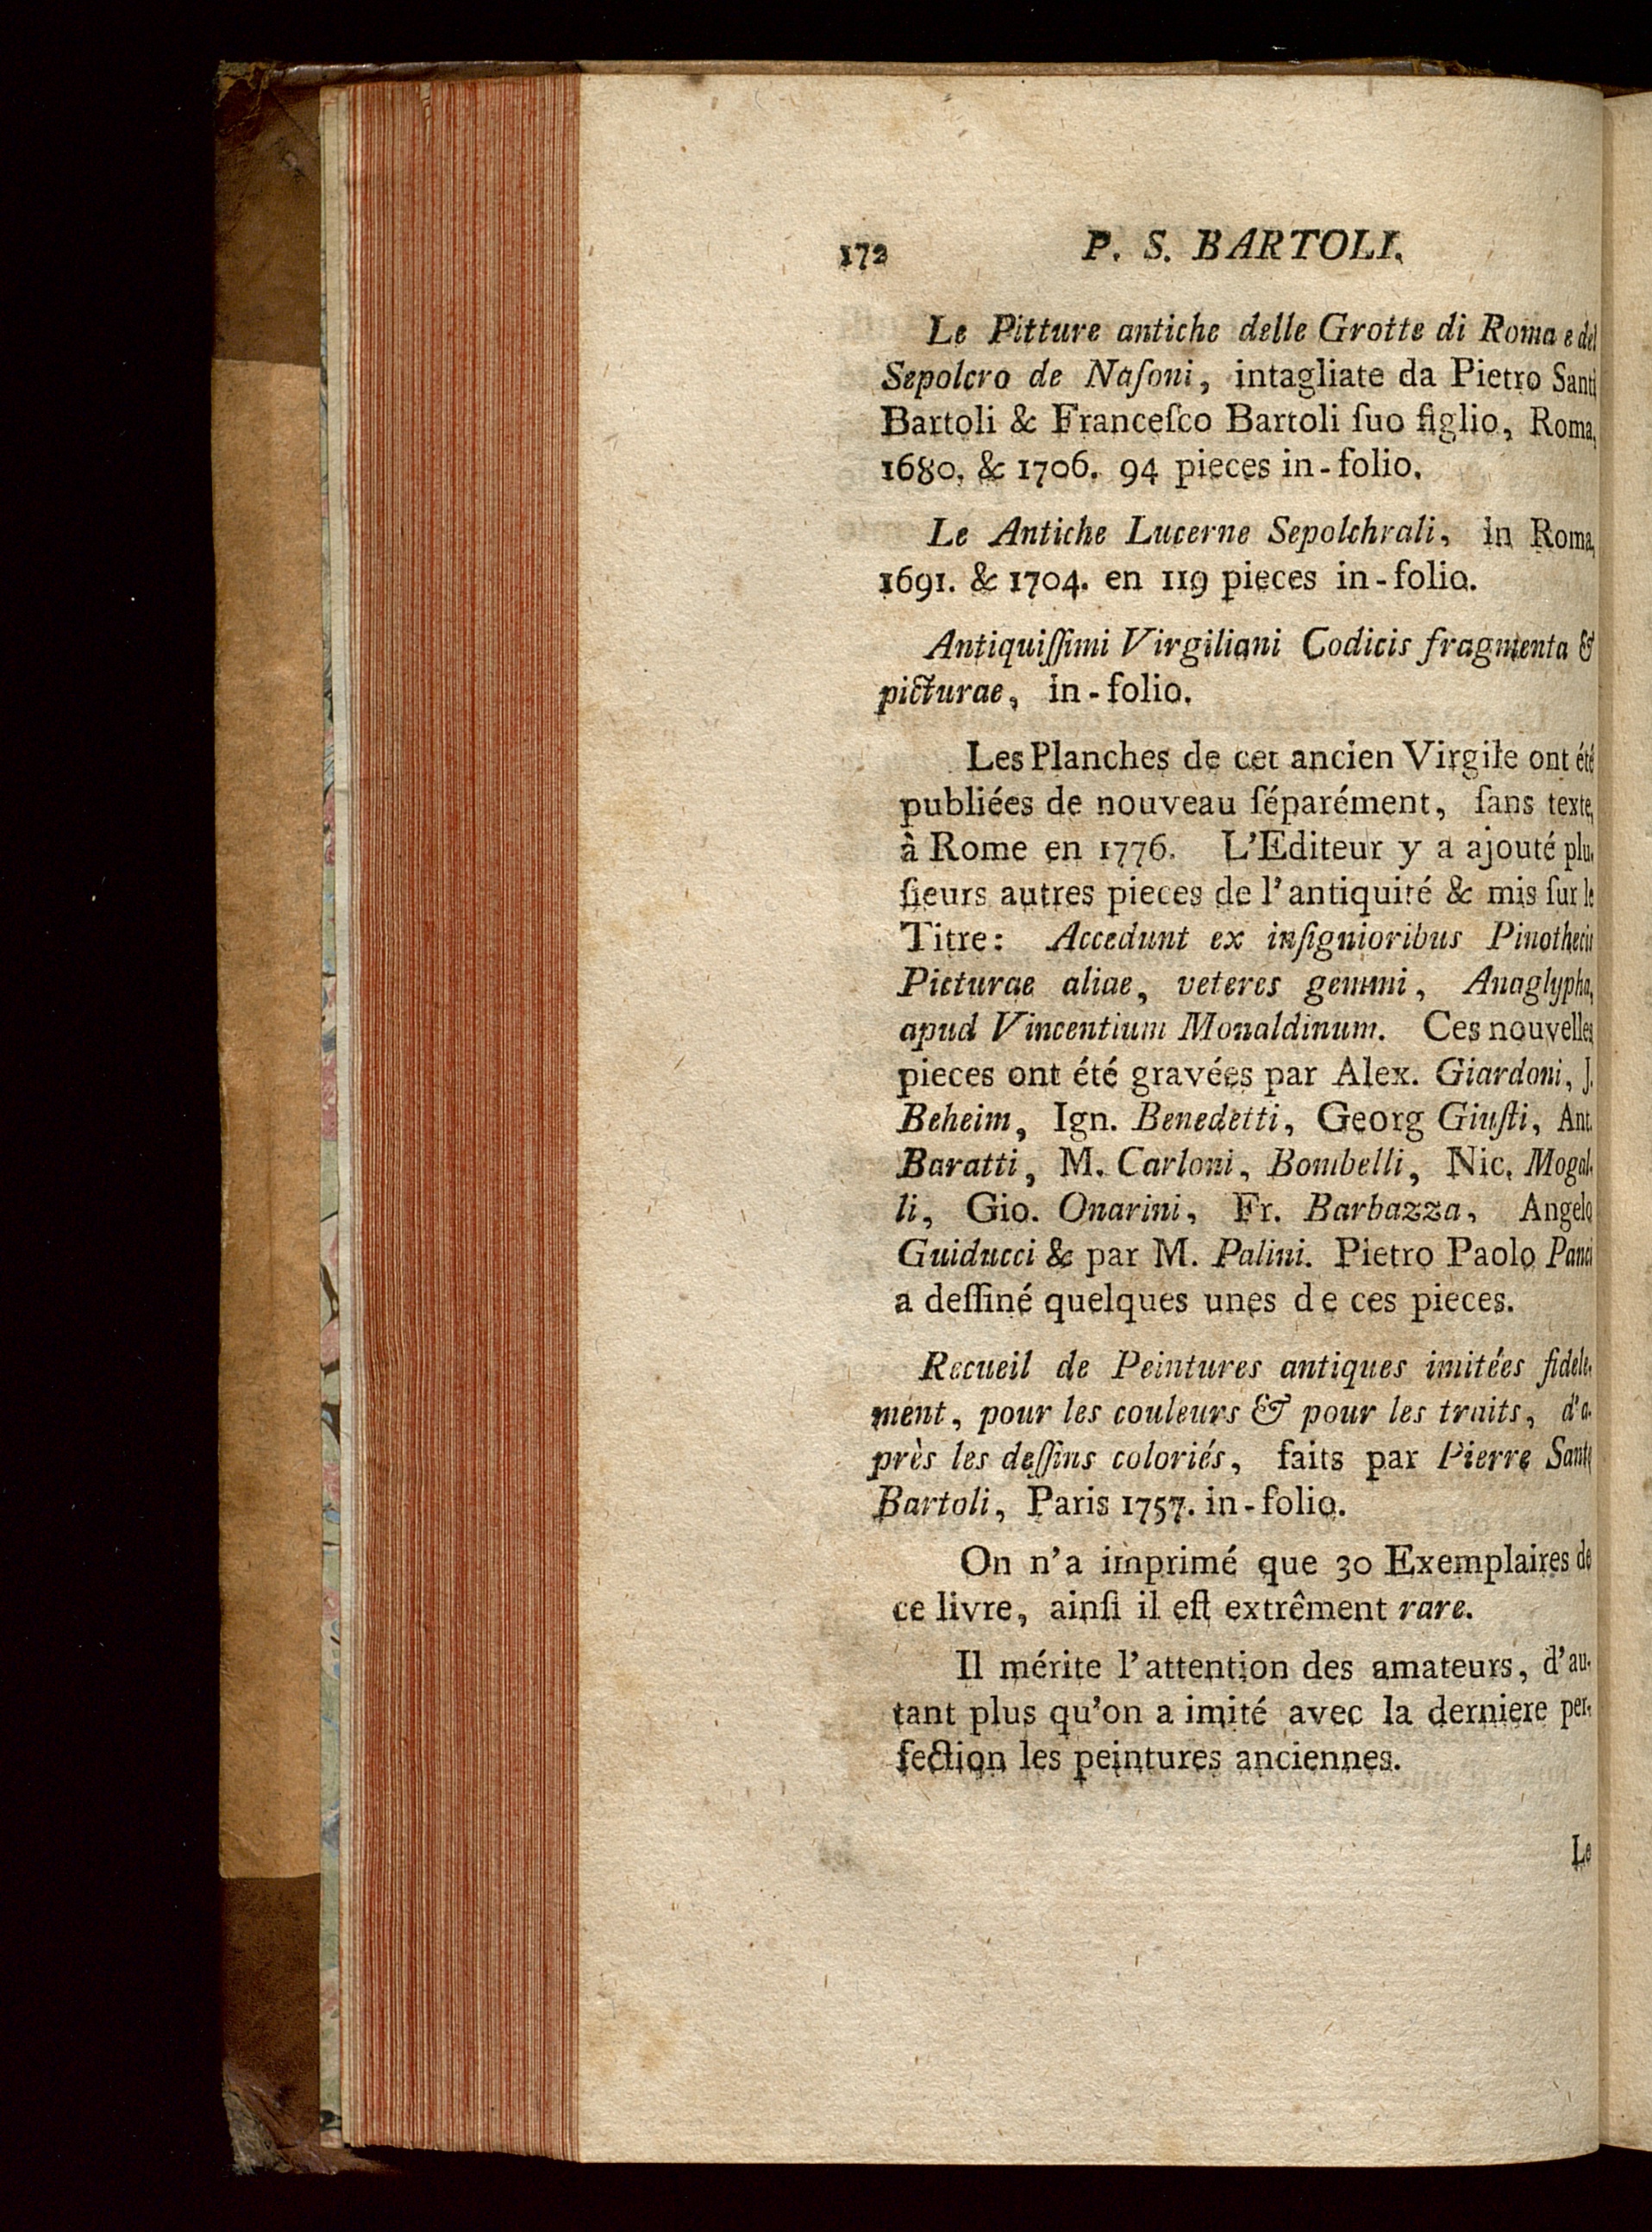 172 P. S. BARTOLI.
Le Pitture antiche delle Grotte di Roma e del
Sepolcro de Naſoni, intagliate da Pietro Santi
Bartoli & Franceſco Bartoli ſuo figlio, Roma,
1680, & 1706. 94 pieces in-folio.
Le Antiche Lucerne Sepolchrali, in Roma,
1691. & 1704. en 119 pieces in-folio.
Antiquiſſimi Virgiliani Codicis fragmenta &
picturae, in-folio.
Les Planches de cet ancien Virgile ont été
publiées de nouveau ſéparément, ſans texte,
à Rome en 1776. L'Editeur y a ajouté plu-
ſieurs autres pieces de l'antiquité & mis ſur le
Titre: Accedunt ex inſignioribus Pinothecis
Picturae aliae, veteres gemmi, Anaglypha,
apud Vincentium Monaldinum. Ces nouvelles
pieces ont été gravées par Alex. Giardoni, J.
Beheim, Ign. Benedetti, Georg Giuſti, Ant.
Baratti, M. Carloni, Bombelli, Nic. Mogal-
li, Gio. Onarini, Fr. Barbazza, Angelo
Guiducci & par M. Palini. Pietro Paolo Panci
a deſſiné quelques unes de ces pieces.
Recueil de Peintures antiques imitées fidele-
ment, pour les couleurs & pour les traits, d'a-
près les deſſins coloriés, faits par Pierre Sante
Bartoli, Paris 1757. in-folio.
On n'a imprimé que 30 Exemplaires de
ce livre, ainſi il eſt extrêment rare.
Il mérite l'attention des amateurs, d'au-
tant plus qu'on a imité avec la derniere per-
fection les peintures anciennes.
Le